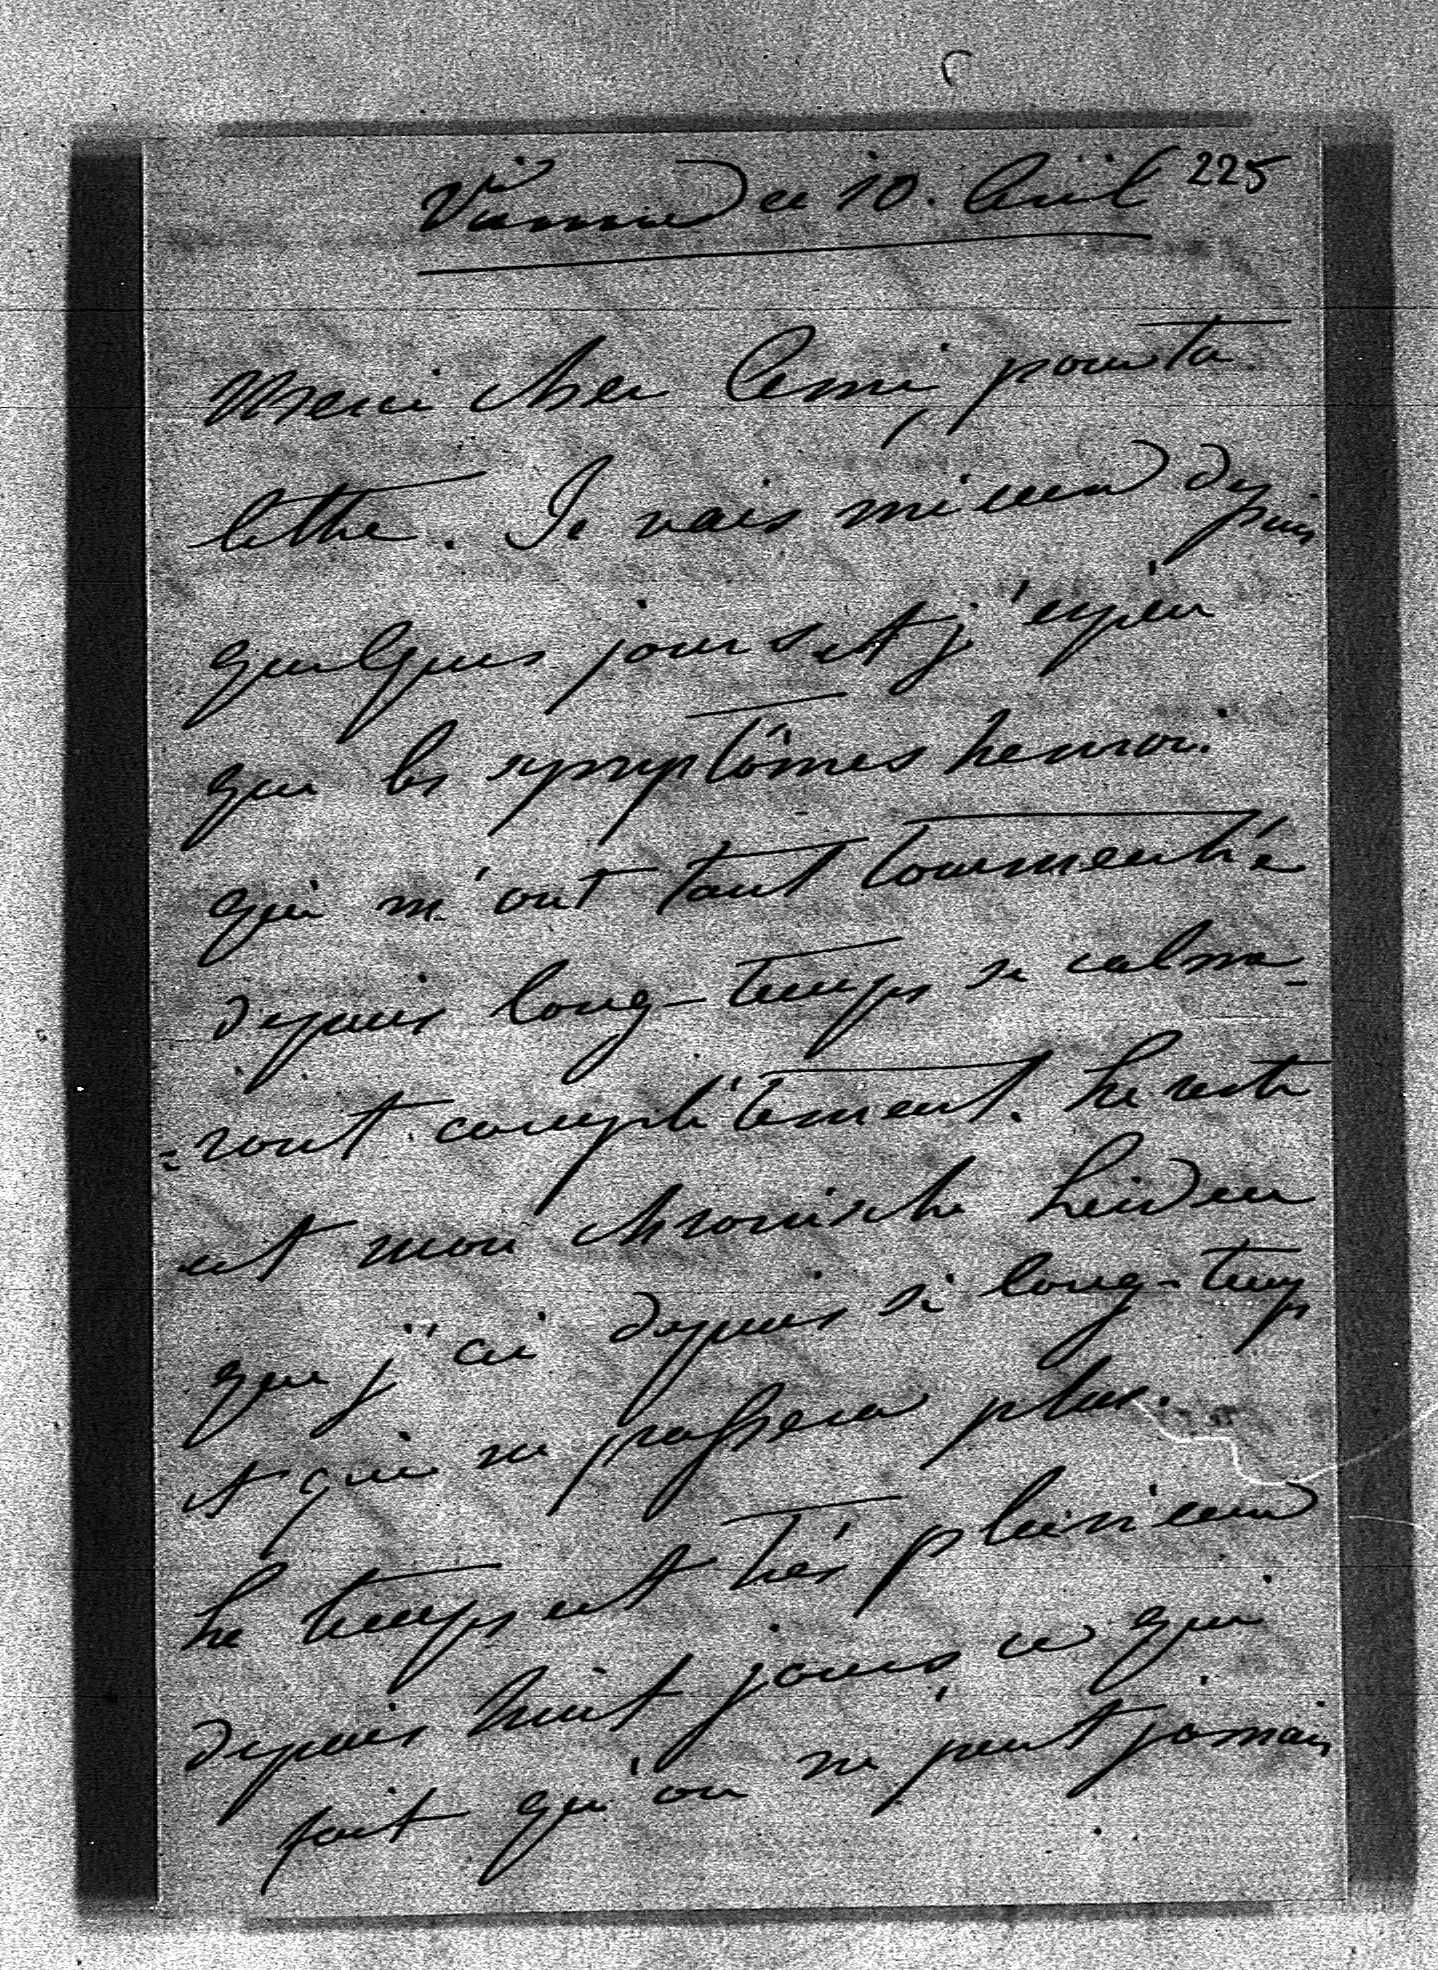 Vienne ce 10. Avril 225
Merci cher Ami, pour ta
lettre. Je vais mieux depuis
quelques jours et j'espère
que les symptômes hemoroi.
qui m'ont tant tourmenté
depuis long-temps se calme-
=ront complètement. Le reste
est mon chronische Leiden
que j'ai depuis si long-temps
et qui ne passera plus.
Le temps est très pluvieux
depuis huit jours ce qui
fait qu'on ne peut jamais